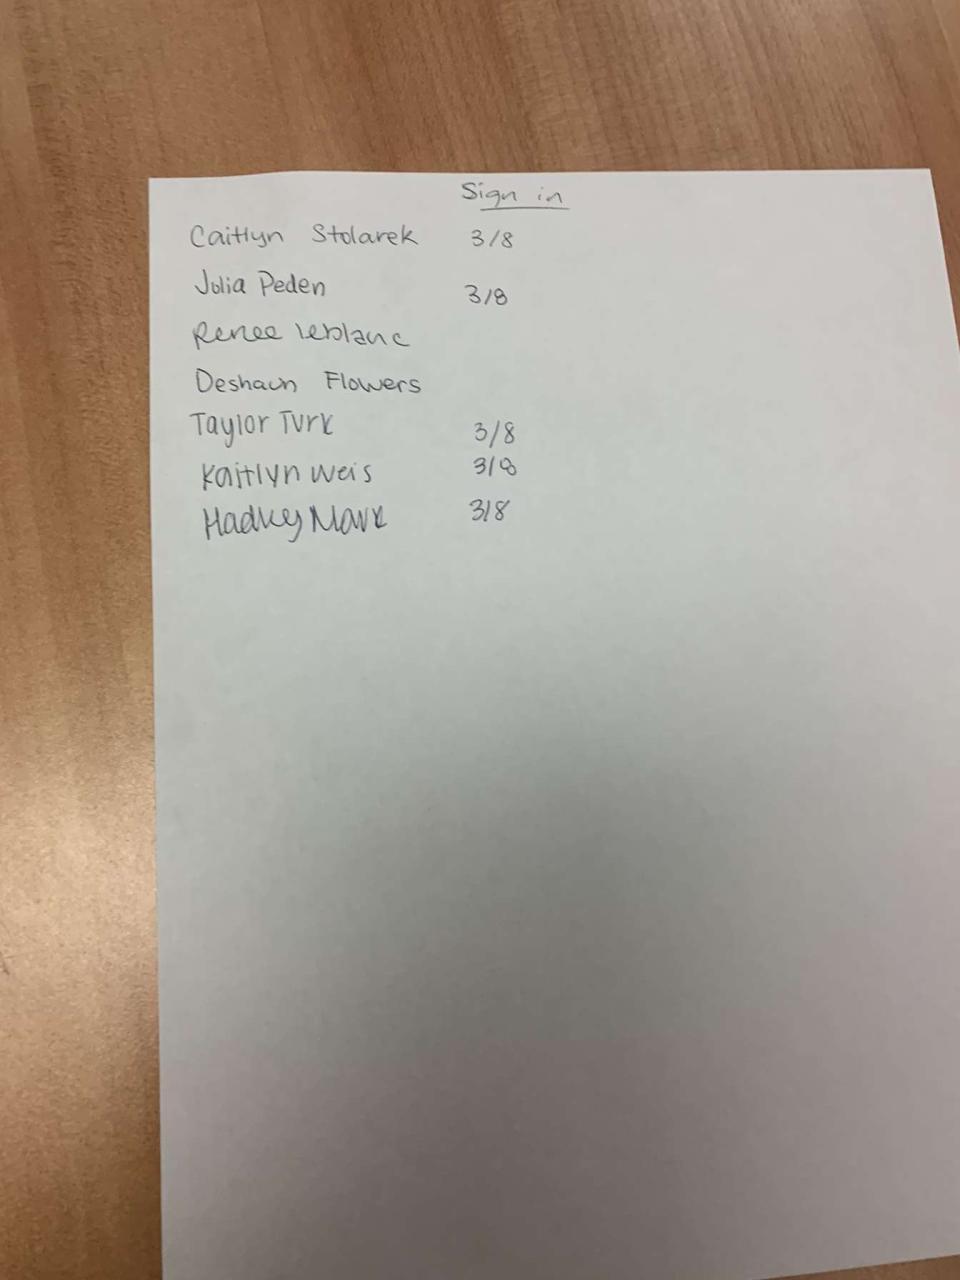 Sign in
Caitlyn Stolarek 3/8
Julia Peden 3/8
Renee leblanc
Deshaun Flowers
Taylor Turk 3/8
Kaitlyn Weis 3/8
3/8